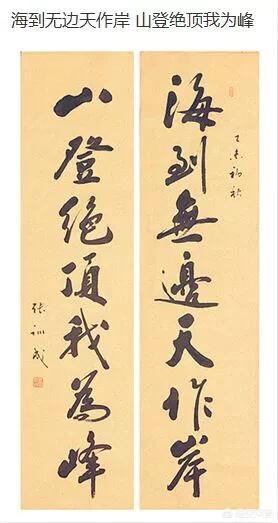 海到无边天作岸 山登绝顶我为峰
海到無邊天作岸
未初秋
山登絶頂我為峰
張訓成